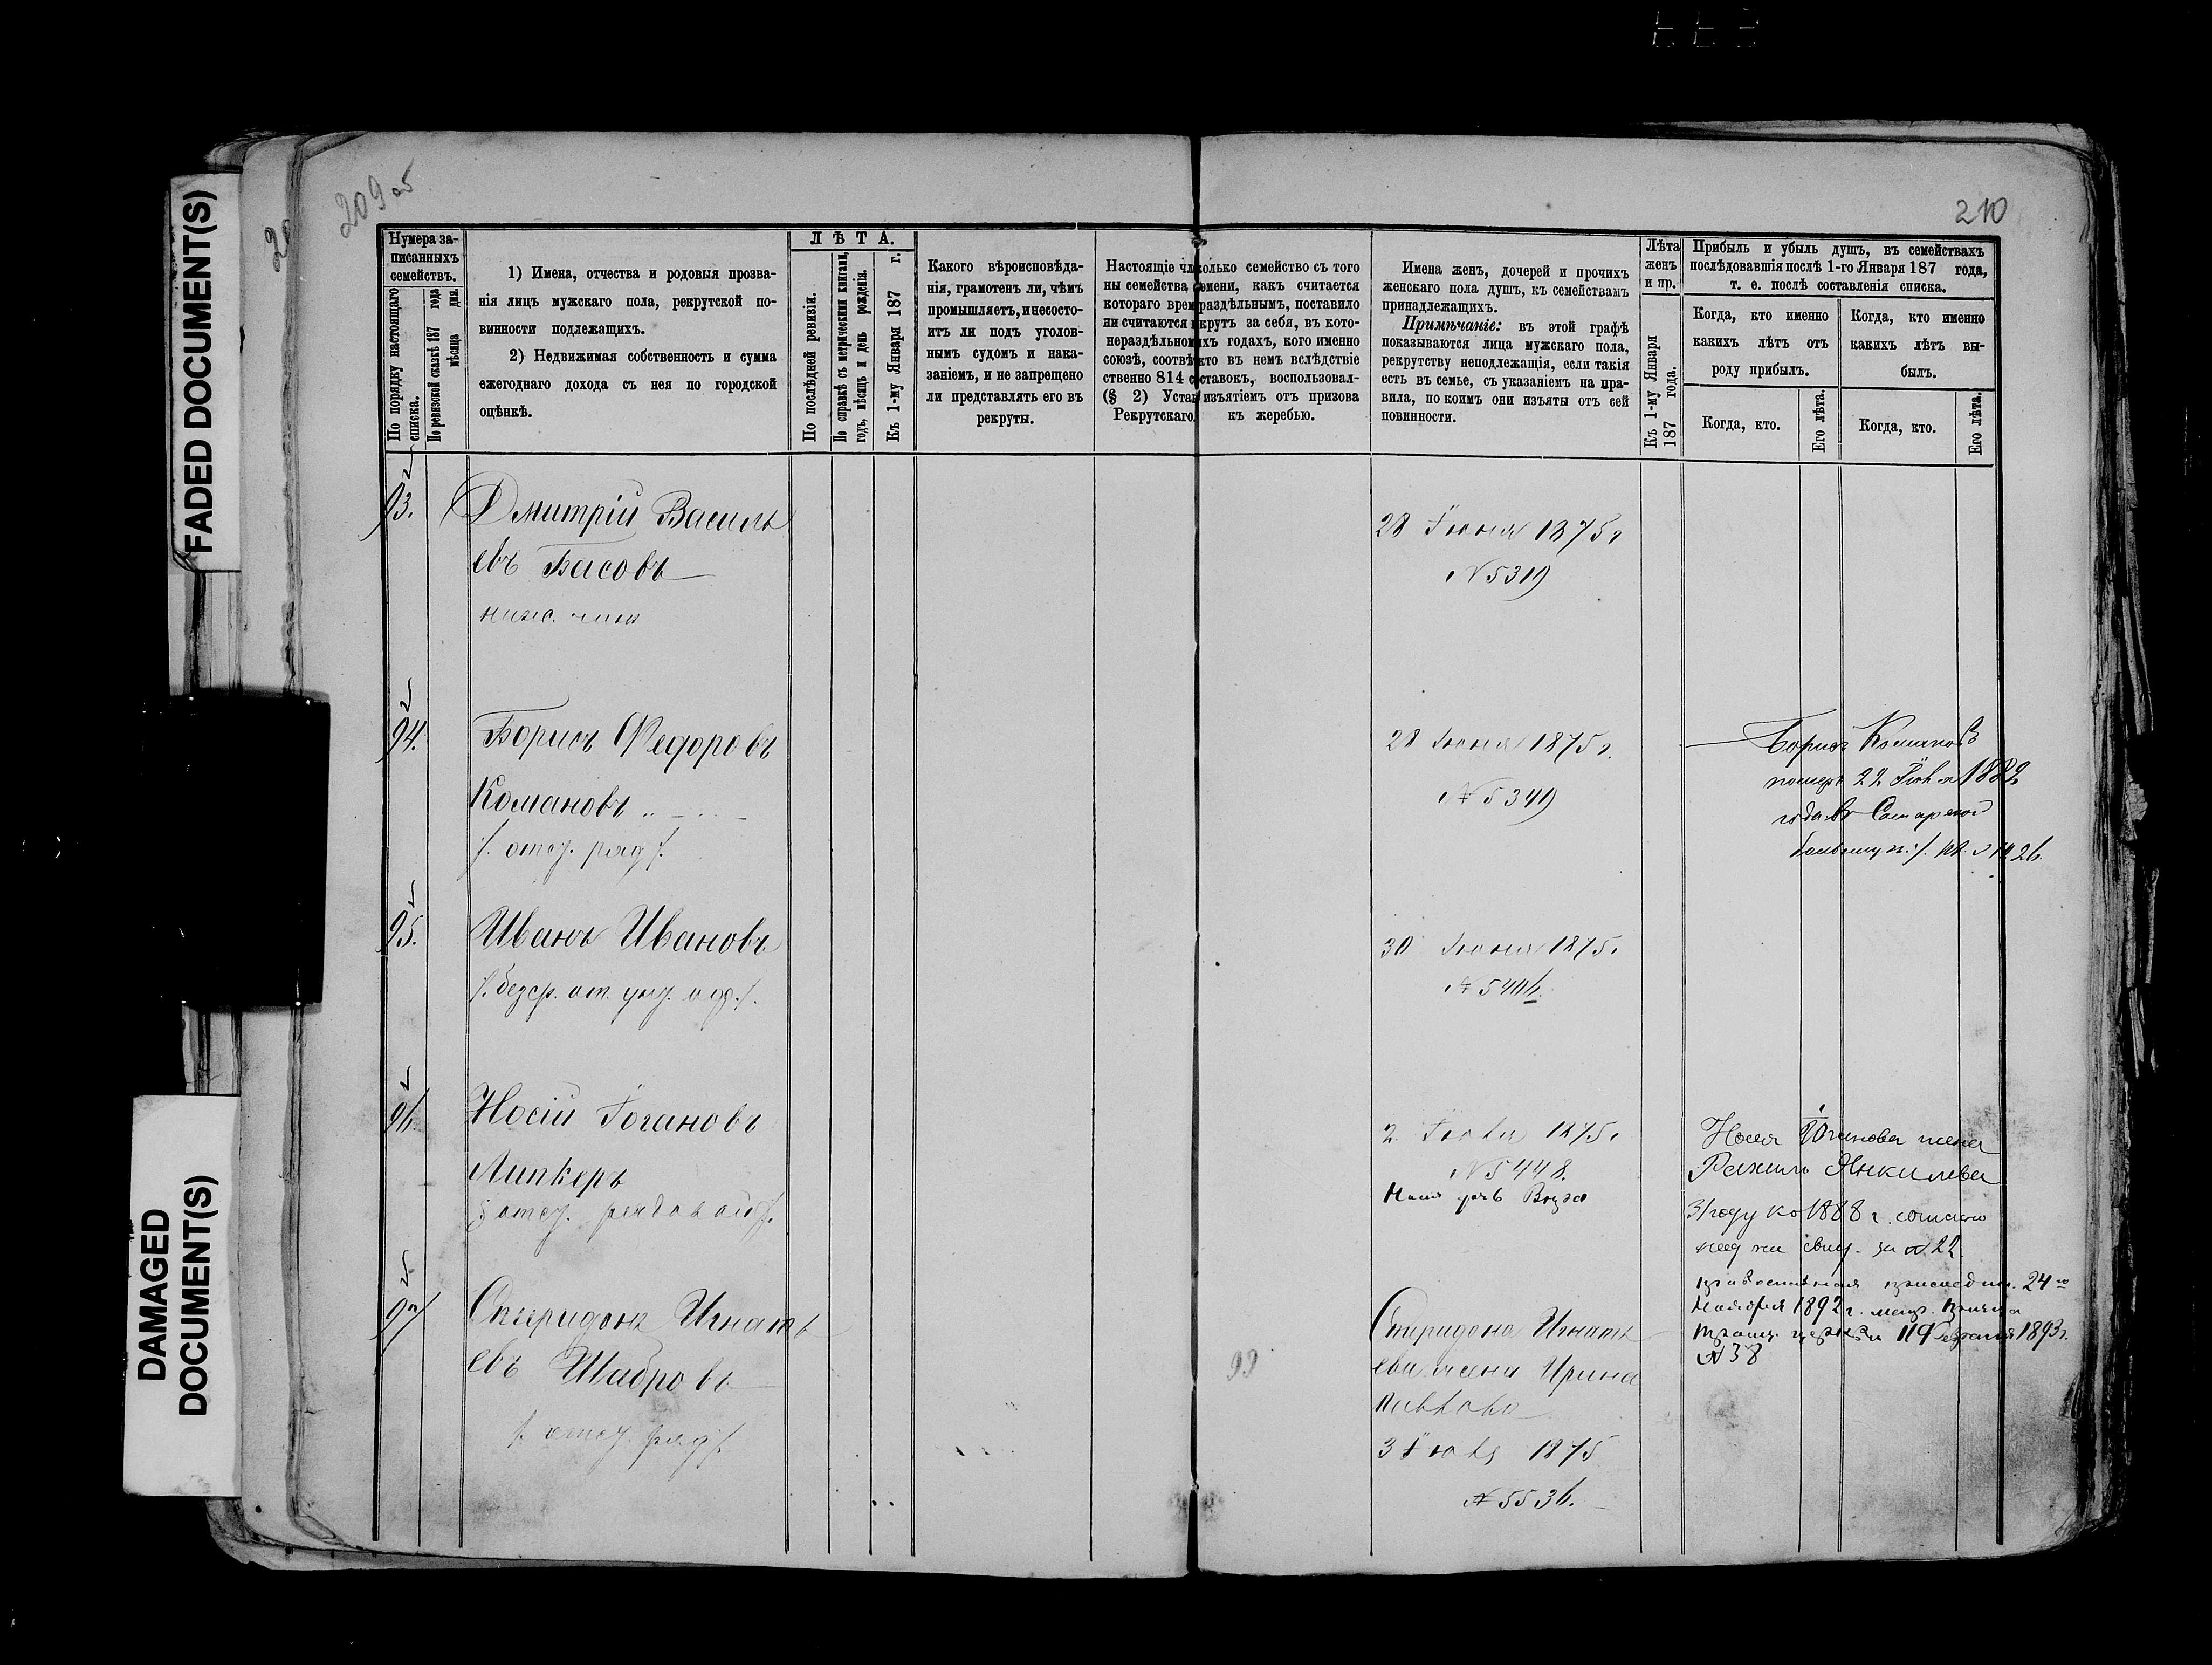 FADED DOCUMENT(S)
DAMAGED
DOCUMENT(S)
209 об
210
Нумера за-
писанныхъ
семействъ.
По порядку настоящаго
списка.
По ревизской сказкѣ 187 года
мѣсяца дня.
1) Имена, отчества и родовыя прозва-
нія лицъ мужскаго пола, рекрутской по-
винности подлежащихъ.
2) Недвижимая собственность и сумма
ежегоднаго дохода съ нея по городской
оцѣнкѣ.
ЛѢТА.
По послѣдней ревизіи.
По справкѣ съ метрическими книгами,
годъ, мѣсяцъ и день рожденія.
Къ 1-му Января 187 г.
Какого вѣроисповѣда-
нія, грамотенъ ли, чѣмъ
промышляетъ, и несосто-
итъ ли подъ уголов-
нымъ судомъ и нака-
заніемъ, и не запрещено
ли представлять его въ
рекруты.
Настоящіе чл
ны семейства
котораго врем
ни считаются
нераздѣльном
союзѣ, соотвѣ
ственно 814 с
(§ 2) Устав
Рекрутскаго
колько семейство съ того
емени, какъ считается
раздѣльнымъ, поставило
крутъ за себя, въ кото-
ихъ годахъ, кого именно
кто въ немъ вслѣдствіе
ставокъ, воспользовал-
изъятіемъ отъ призова
къ жеребью.
Имена женъ, дочерей и прочихъ
женскаго пола душъ, къ семействамъ
принадлежащихъ.
Примѣчаніе: въ этой графѣ
показываются лица мужскаго пола,
рекрутству неподлежащія, если такія
есть въ семье, съ указаніемъ на пра-
вила, по коимъ они изъяты отъ сей
повинности.
Лѣта
женъ
и пр.
Къ 1-му Января
187 года.
Прибыль и убыль душъ, въ семействахъ
послѣдовавшія послѣ 1-го Января 187 года,
т. е. послѣ составленія списка.
Когда, кто именно
какихъ лѣтъ отъ
роду прибылъ.
Когда, кто именно
какихъ лѣтъ вы-
былъ.
Когда, кто.
Его лѣта.
Когда, кто.
Его лѣта.
93.
Дмитрій Василь
евъ Басовъ
нижс. чин
28 Іюня 1875 г
№ 5319
94.
Борисъ Федоровъ
Комановъ
/. отст. ряд /.
28 Іюня 1875 г.
№ 5349
Борисъ Комановъ
померъ 22 Іюля 1882
года въ Самарской
95.
Иванъ Ивановъ
30 Іюня 1875.
96.
Носій Іогановъ
Липкеръ
отст. рядовой /.
2 Іюля 1875.
№ 5448.
Носія Іоганова жена
Рахиль Янкилева
31 году къ 1888 г. согласно
за № 22.
24 го
Ноября 1892 г.
церкви 119 Февраля 1893 г.
№ 38
97
Спиридонъ Игнать
евъ Шабровъ
/. отст. ряд /.
99
Спиридона Игнать
ева жена Ирина
Павлова
3 Іюля 1875
№ 5536.